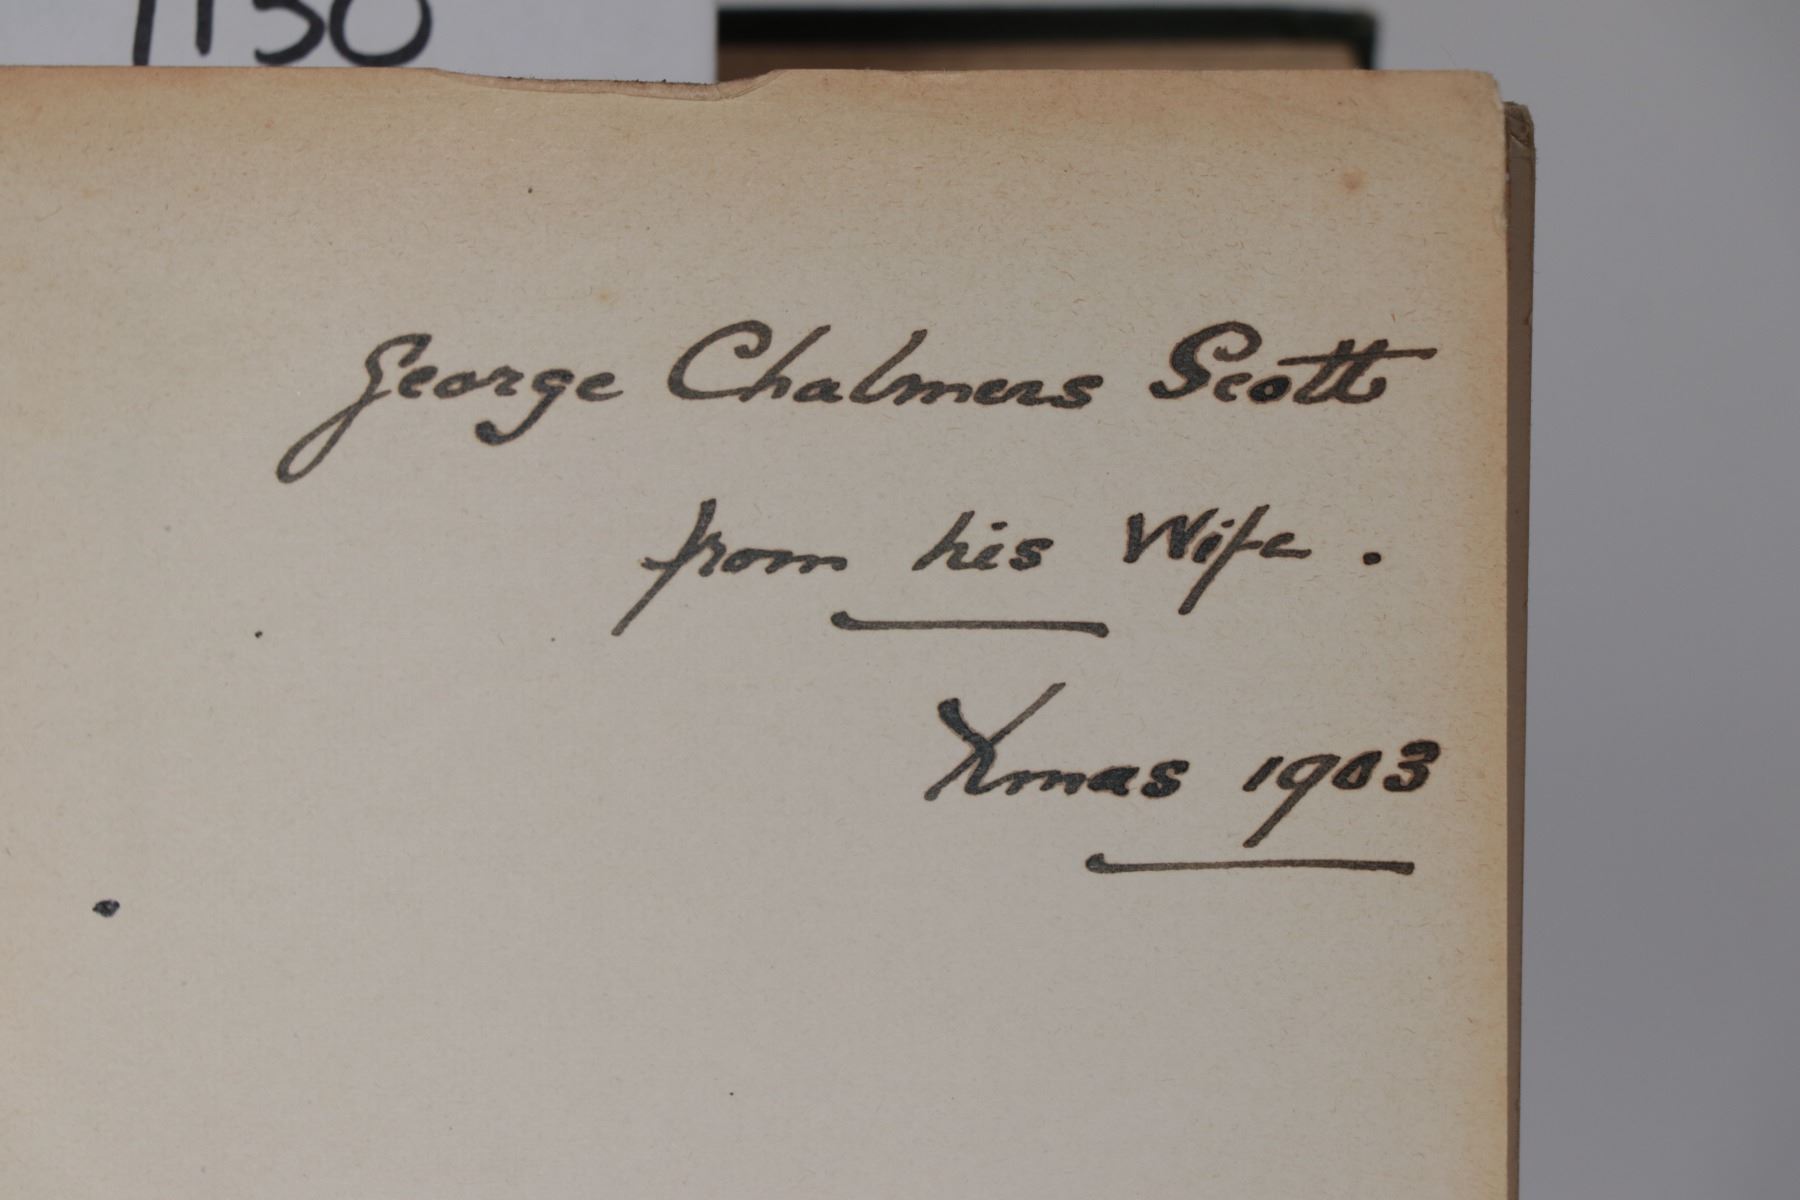 George Chalmers Scott
from his Wife.
Xmas 1903